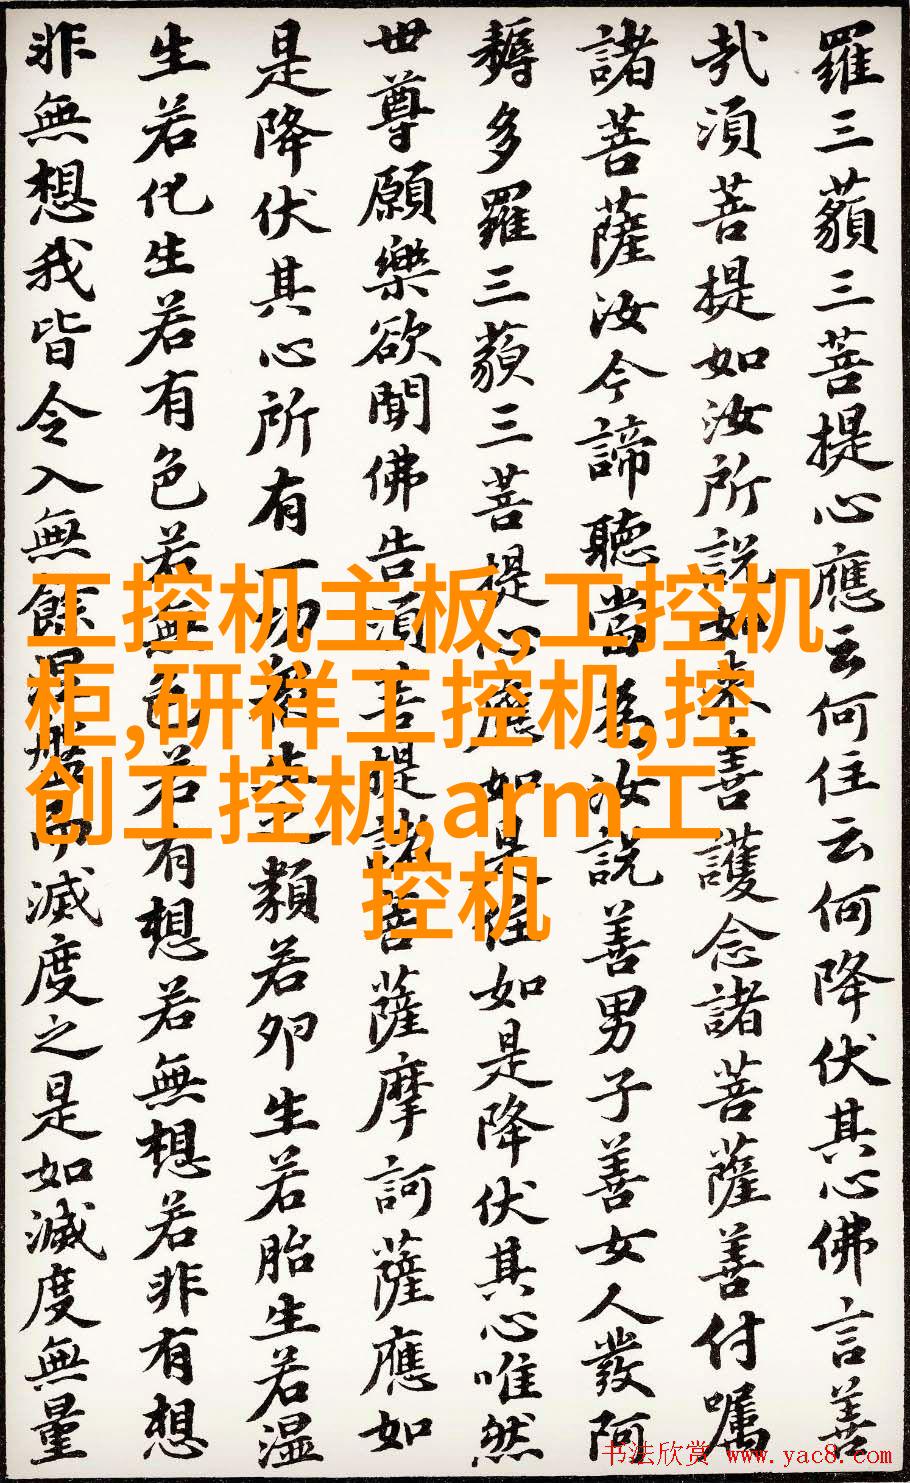 羅三藐三菩提心應云何住云何降伏其心佛言善
哉須菩提如汝所說如來善護念諸菩薩善付囑
諸菩薩汝今諦聽當為汝說善男子善女人發阿
耨多羅三藐三菩提心應如是住如是降伏其心唯然
世尊願樂欲聞佛告須菩提諸菩薩摩訶薩應如
是降伏其心所有一切衆生之類若卵生若胎生若湿
生若化生若有色若無色若有想若無想若非有想
非無想我皆令入無餘涅槃而滅度之是如滅度無量
工控机主板,工控机
柜,研祥工控机,控
创工控机,arm工
控机
书法欣赏 www.yac8.com